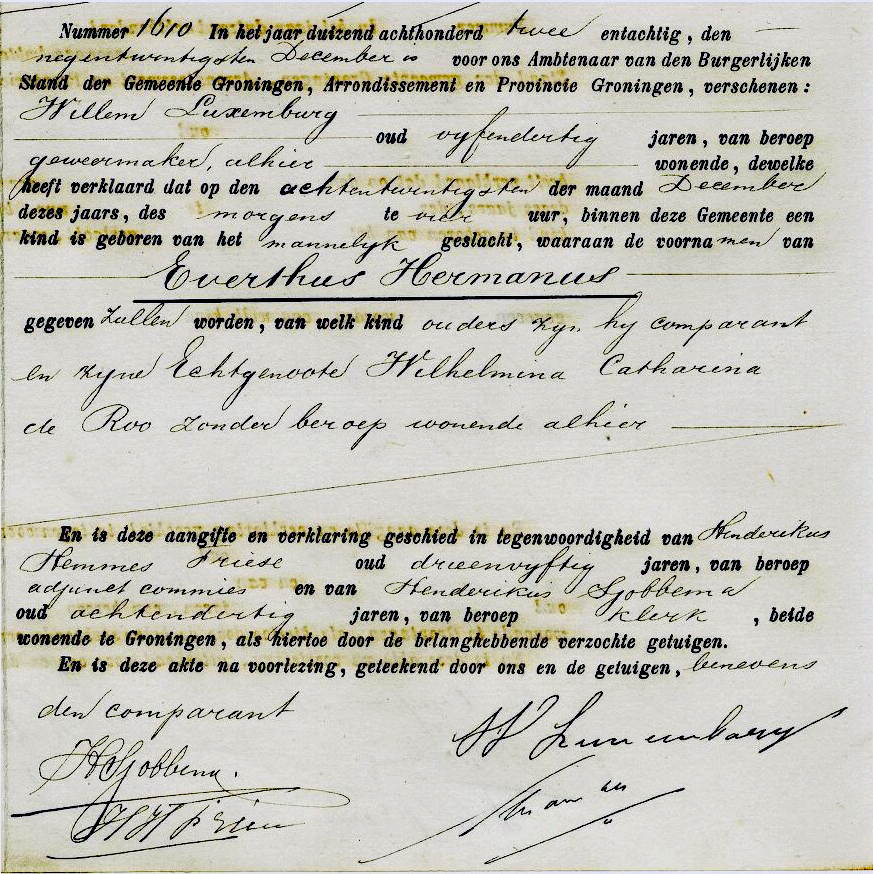 Nummer 1610 In het jaar duizend achthonderd twee entachtig, den
negentwintigsten December is voor ons Ambtenaar van den Burgerlijken
Stand der Gemeente Groningen, Arrondissement en Provincie Groningen, verschenen:
Willem Luxemburg
oud vyfendertig jaren, van beroep
geweermaker, alhier wonende, dewelke
heeft verklaard dat op den achtentwintigsten der maand December
dezes jaars, des morgens te vier uur, binnen deze Gemeente een
kind is geboren van het mannelyk geslacht, waaraan de voornamen van
Everthus Hermanus
gegeven zullen worden, van welk kind ouders zyn hy comparant
en zyne Echtgenoote Wilhelmina Catharina
de Roo zonder beroep wonende alhier
En is deze aangifte en verklaring geschied in tegenwoordigheid van Henderikus
Hemmes Friese oud drieenvyftig jaren, van beroep
adjunct commies en van Henderikus Sjobbema
oud achtendertig jaren, van beroep klerk, beide
wonende te Groningen, als hiertoe door de belanghebbende verzochte getuigen.
En is deze akte na voorlezing, geteekend door ons en de getuigen, benevens
den comparant
W Luxemburg
HSjobbema.
HH Friese